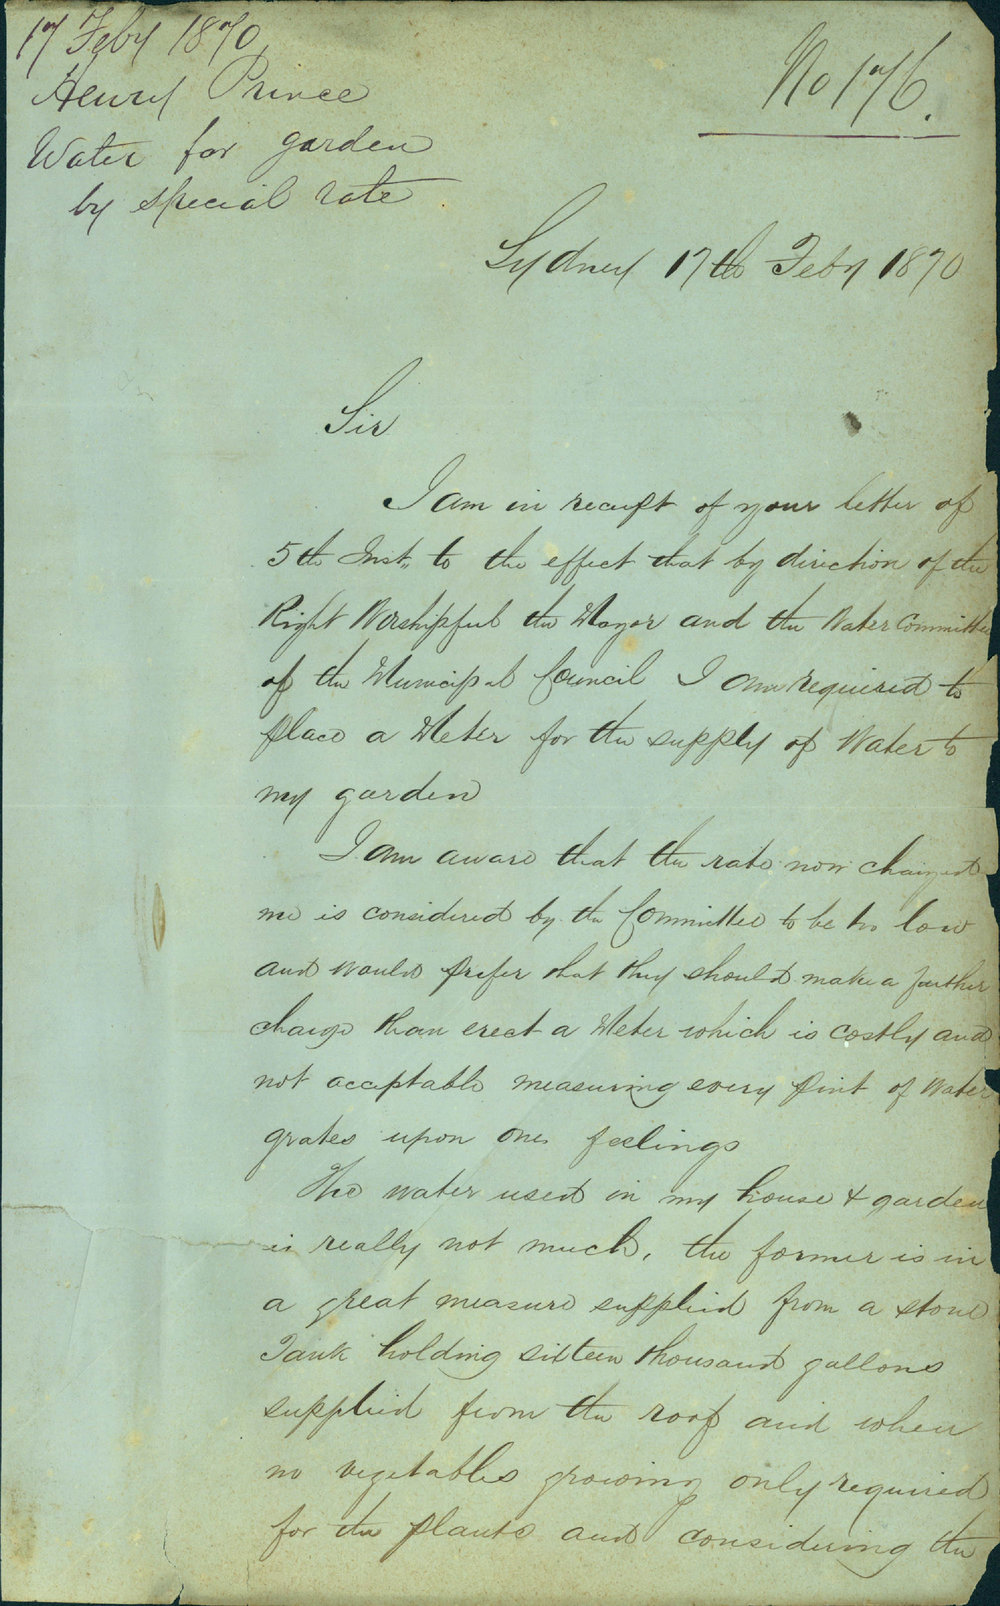 17 Feby 1870
Henry Prince
Water for garden
by special rate
No 176.
Sydney 17th Feby 1870
Sir
I am in receipt of your letter of
5th Inst, to the effect that by direction of the
Right Worshipful the Mayor and the Water Committee
of the Municipal Council I am required to
place a Meter for the supply of Water to
my garden
I am aware that the rate now charged
me is considered by the Committee to be to low
and would prefer that they should make a further
charge than erect a Meter which is costly and
not acceptable measuring every pint of Water
grates upon ones feelings
The water used in my house & garden
is really not much, the former is in
a great measure supplied from a stone
Tank holding sixteen thousand gallons
supplied from the roof and when
no vegetables growing only required
for the plants and considering the